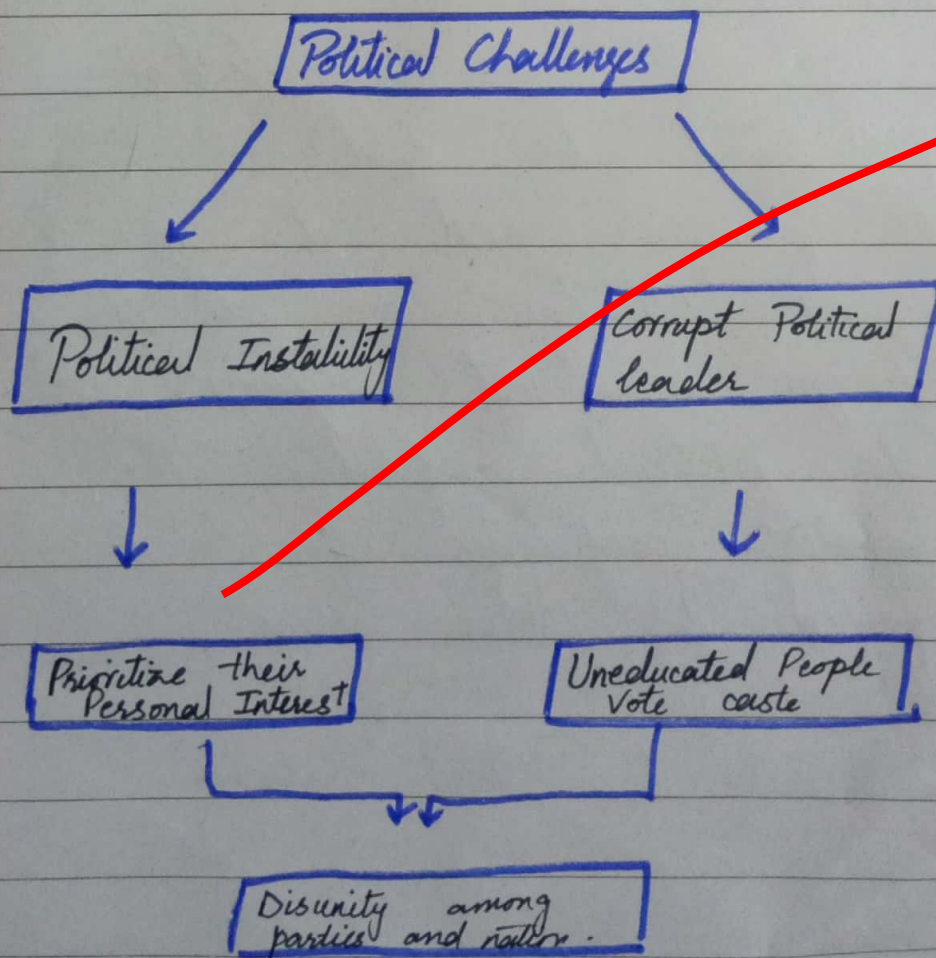 Political Challenges
Political Instability
Corrupt Political
leader
Prioritize their
Personal Interest
Uneducated People
Vote caste
Disunity among
parties and nation.